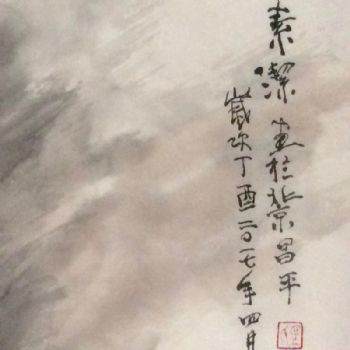 素潔画於北京昌平
歲次丁酉二〇一七年四月